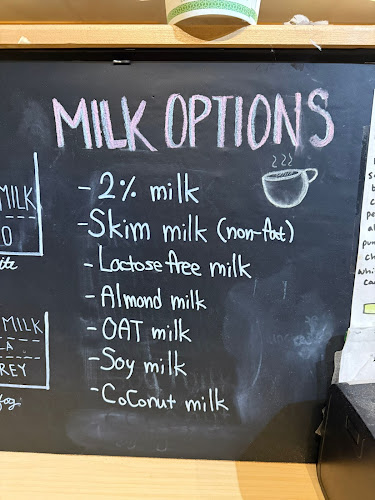 MILK OPTIONS
- 2% milk
- Skim milk (non-fat)
- Lactose free milk
- Almond milk
- OAT milk
- Soy milk
- Coconut milk
MILK
MILK
REY